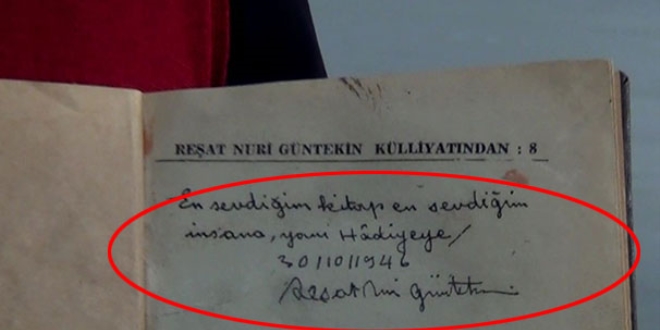 REŞAT NURİ GÜNTEKİN KÜLLİYATINDAN : 8
En sevdiğim kitap en sevdiğim
insana, yani Hâdiyeye/
30/10/1946
Reşat Nuri Güntekin